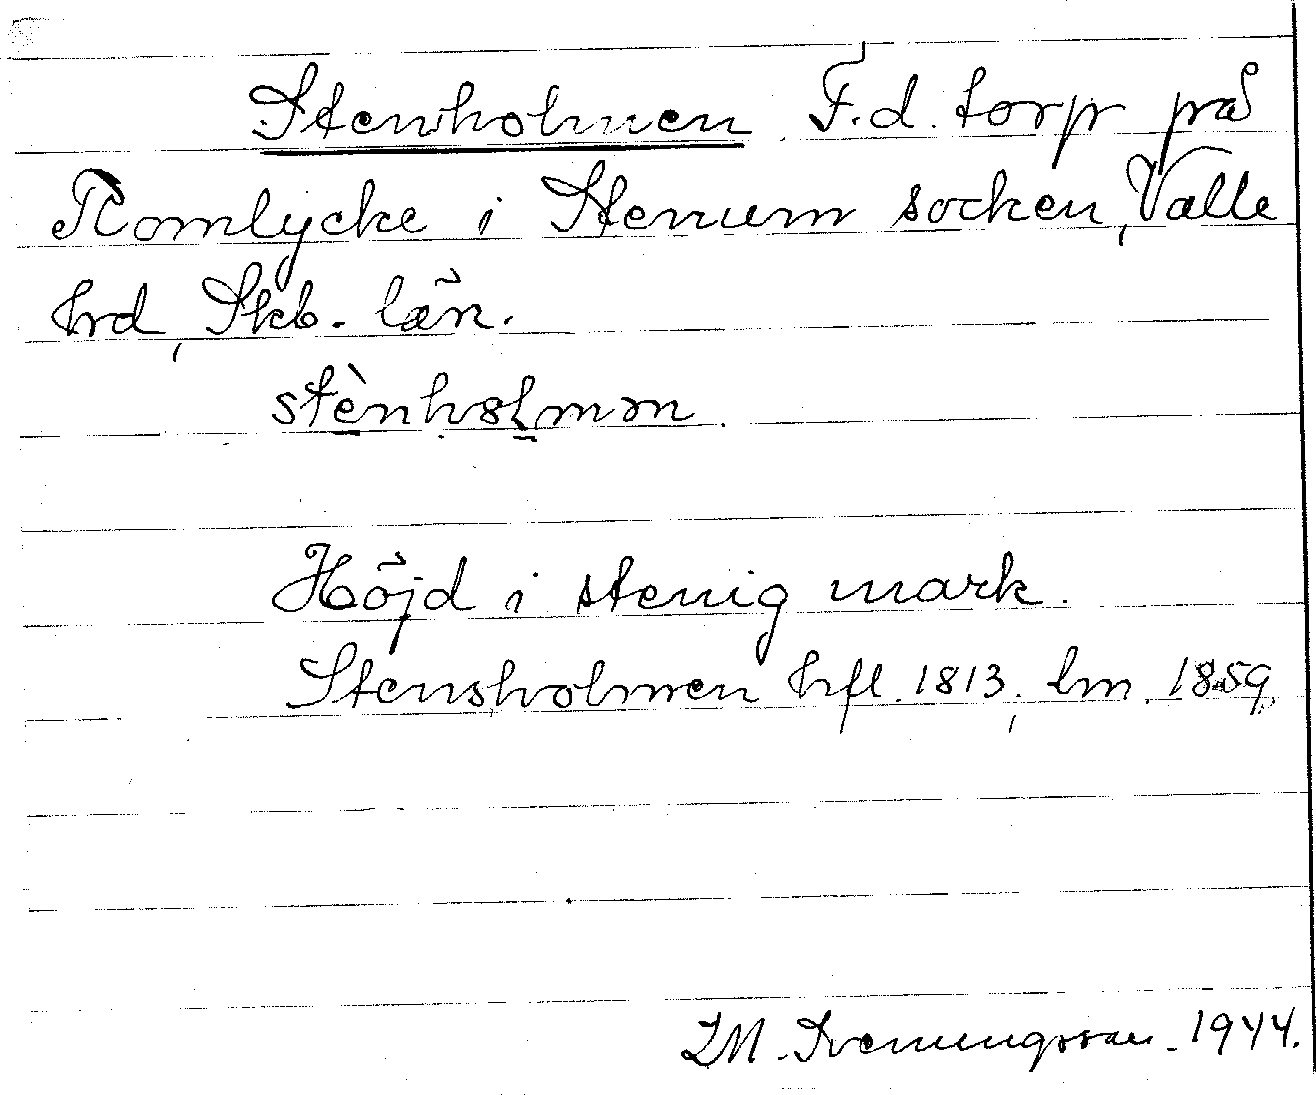 Stenholmen F.d. torp på
Romlycke i Stenum socken, Valle
hrd, Skb. län.
stènhɷlmən
Höjd i stenig mark.
Stensholmen hfl. 1813, lm. 1859.
1944.